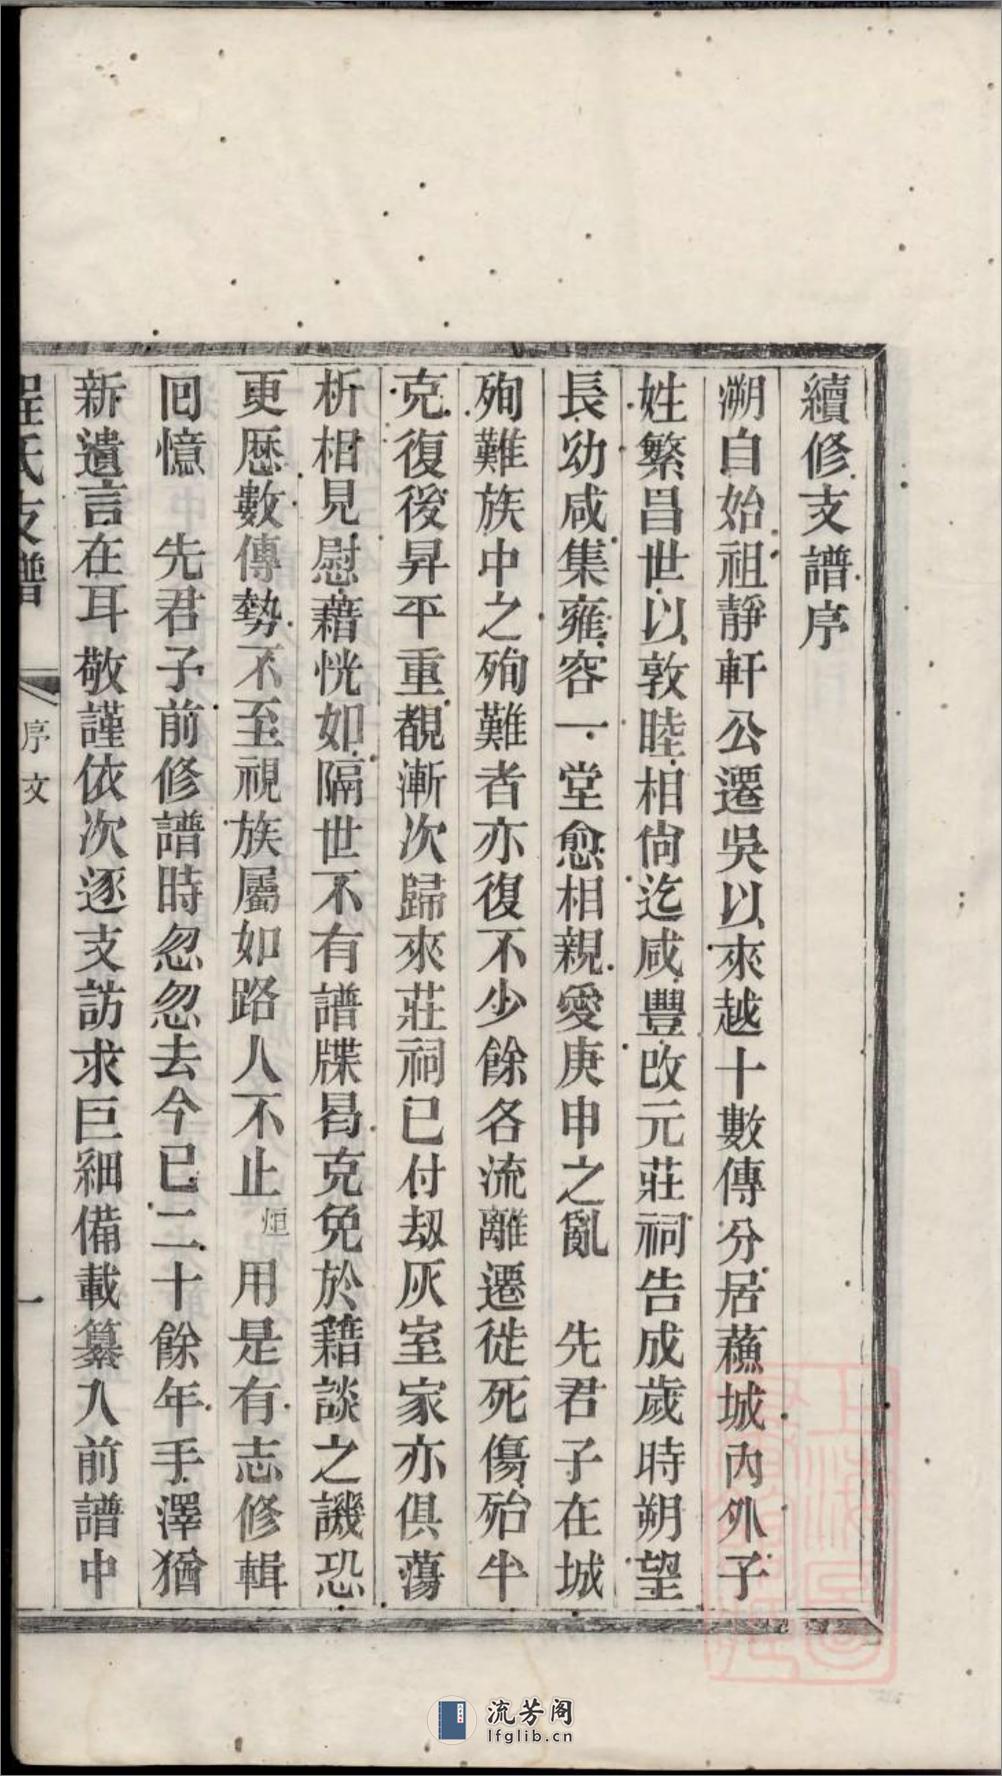 續修支譜序
溯自始祖靜軒公遷吳以來越十數傳分居蘓城內外子
姓繁昌世以敦睦相尙迄咸豐改元莊祠告成歲時朔望
長幼咸集雍容一堂愈相親愛庚申之亂　先君子在城
殉難族中之殉難者亦復不少餘各流離遷徙死傷殆半
克復後昇平重覩漸次歸來莊祠已付刼灰室家亦俱蕩
析相見慰藉恍如隔世不有譜牒曷克免於籍談之譏恐
更歷數傳勢不至視族屬如路人不止烜　用是有志修輯
回憶　先君子前修譜時忽忽去今已二十餘年手澤猶
新遺言在耳敬謹依次逐支訪求巨細備載纂入前譜中
程氏支譜
序文
一
流芳阁
lfglib.cn